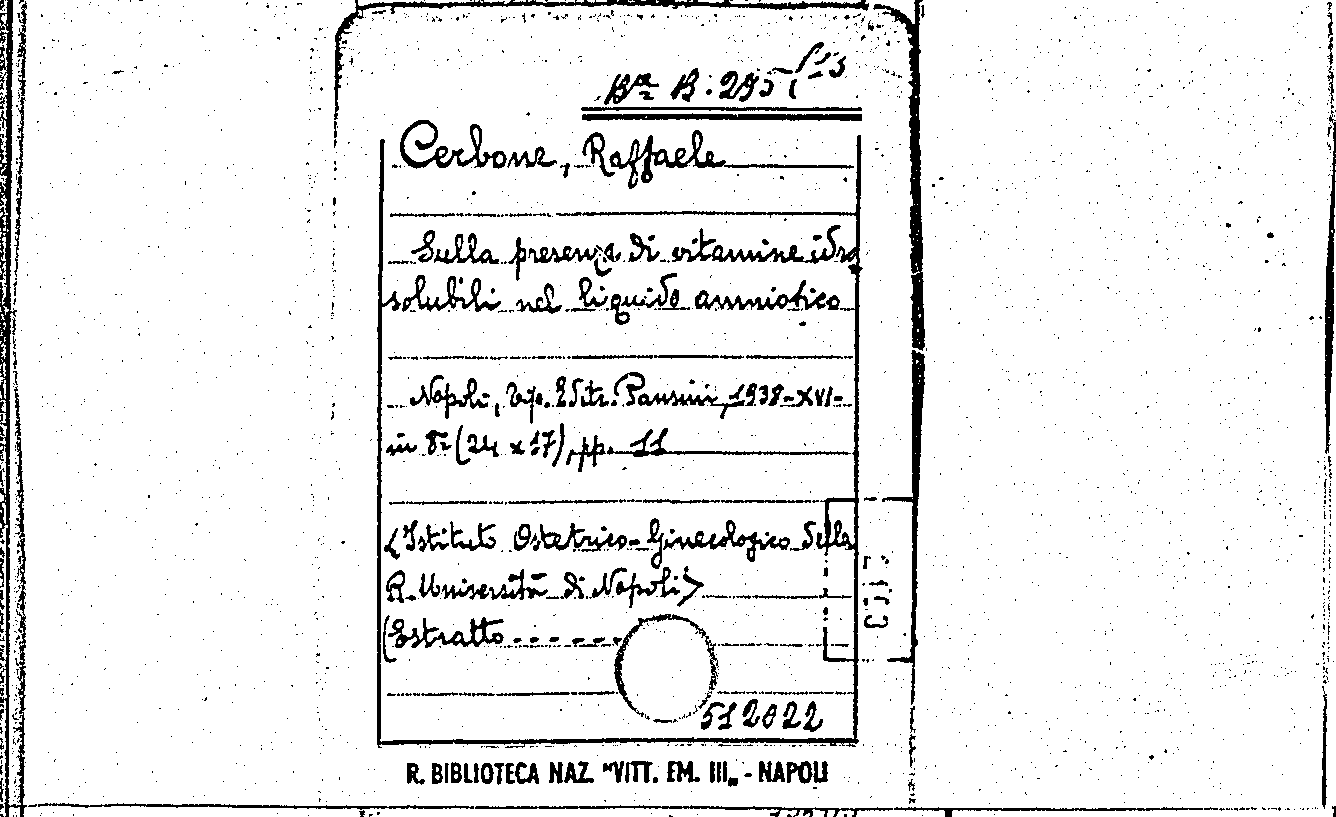 Bª B. 295
Cerbone, Raffaele
Sulla presenza di vitamine idro
solubili nel liquido amniotico
Napoli, Tip. Editr. Pansini, 1938-XVI-
in 8º (24 x 17), pp. 11
<Istituto Ostetrico-Ginecologico della
R. Università di Napoli>
(Estratto - - - - - -
512022
R. BIBLIOTECA NAZ. "VITT. EM. III„ - NAPOLI